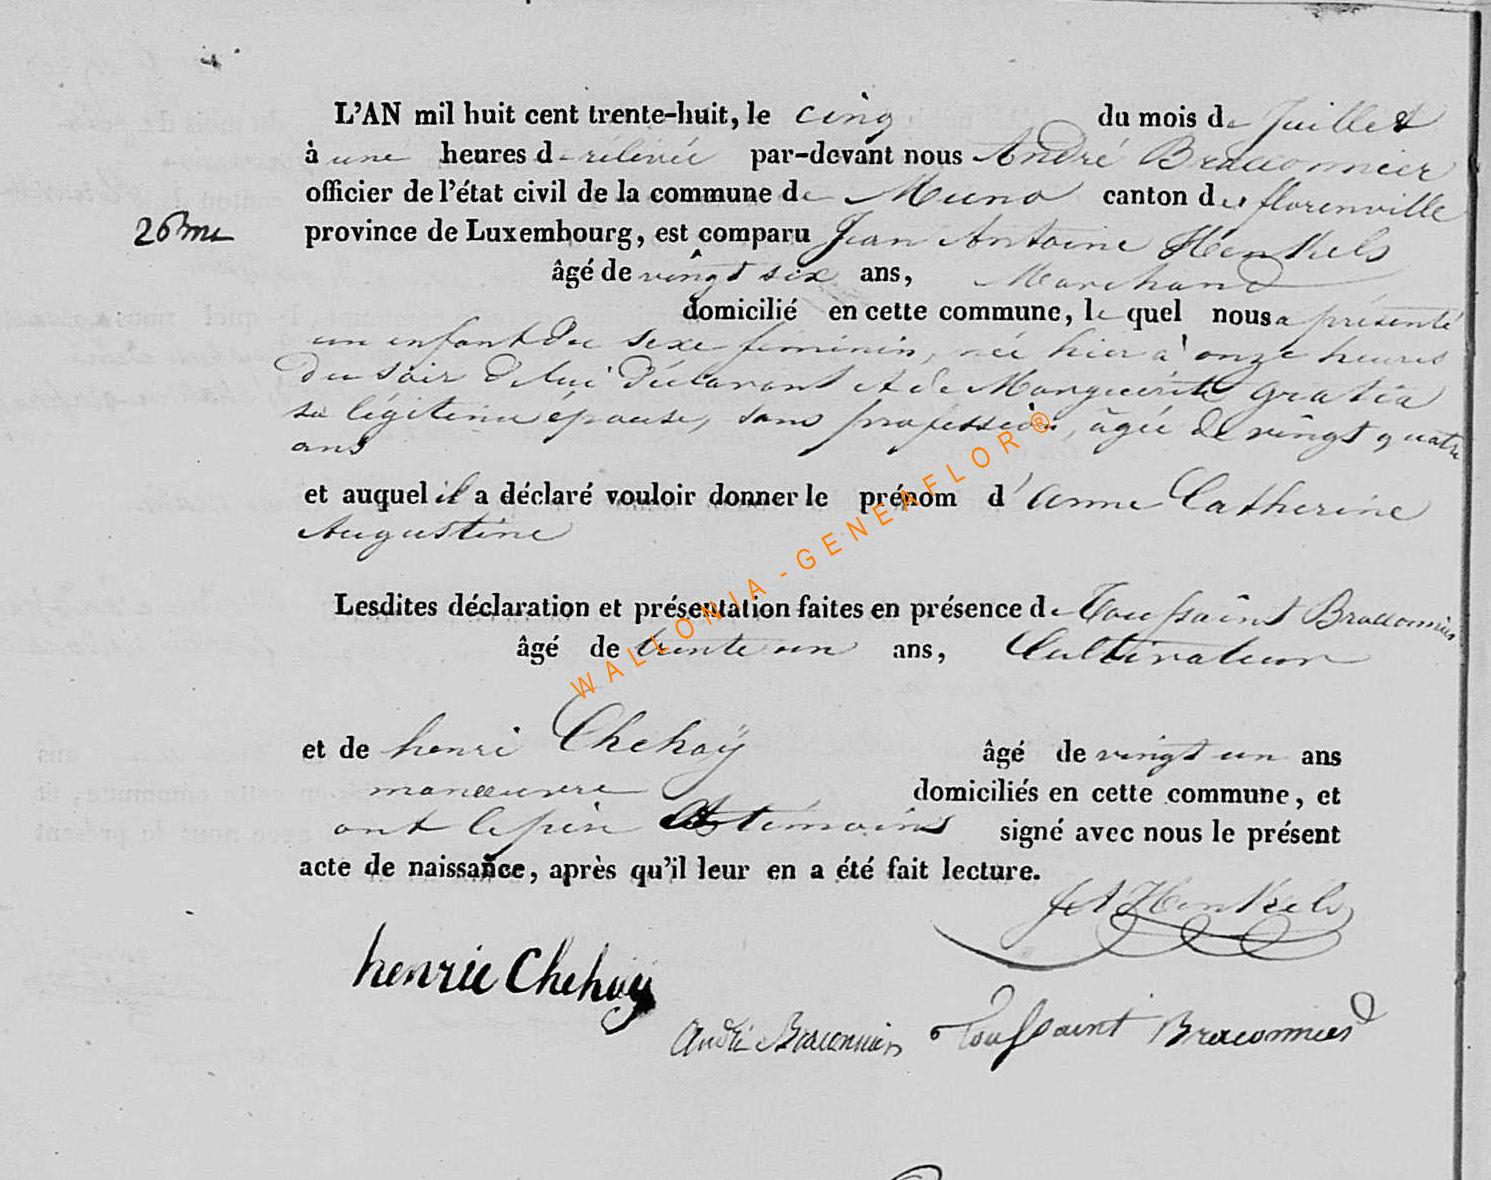 L'AN mil huit cent trente-huit, le cinq du mois de Juillet
à une heures de rélévée par-devant nous André Braconnier
officier de l'état civil de la commune de Muno canton de florenville
26me province de Luxembourg, est comparu Jean Antoine Henkels
âgé de vingt six ans, Marchand
domicilié en cette commune, le quel nous a présenté
un enfant du sexe féminin, née hier à onze heures
du soir de lui déclarant et de Marguerite Gratia
sa légitime épouse, sans profession, âgée de vingt quatre
ans
et auquel il a déclaré vouloir donner le prénom d'anne Catherine
Augustine
Lesdites déclaration et présentation faites en présence de Toussaint Braconnier
âgé de trente un ans, Cultivateur
et de henri Chehoÿ âgé de vingt un ans
manœuvre domiciliés en cette commune, et
ont le père et témoins signé avec nous le présent
acte de naissance, après qu'il leur en a été fait lecture.
JA Henkels
henrie Chehoÿ
André Braconnier Toussaint Braconnier
WALLONIA-GENEAFLOR®